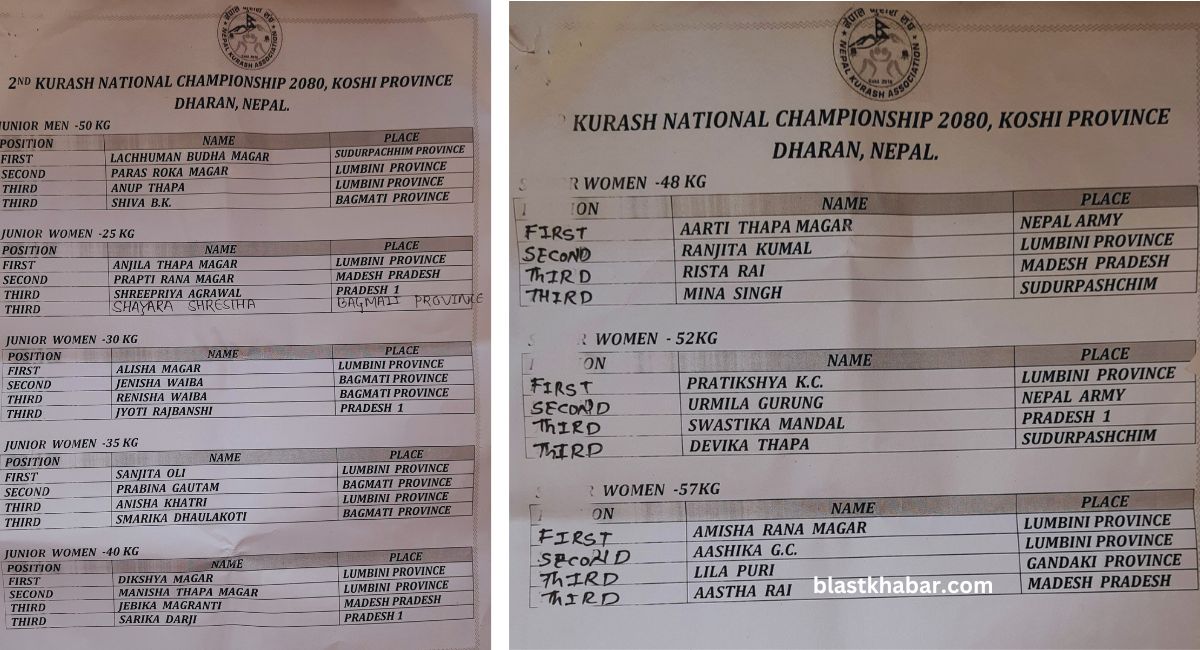 NEPAL KURASH ASSOCIATION
2ND KURASH NATIONAL CHAMPIONSHIP 2080, KOSHI PROVINCE
DHARAN, NEPAL.
JUNIOR MEN -50 KG
POSITION NAME PLACE
FIRST LACHHUMAN BUDHA MAGAR SUDURPACHHIM PROVINCE
SECOND PARAS ROKA MAGAR LUMBINI PROVINCE
THIRD ANUP THAPA LUMBINI PROVINCE
THIRD SHIVA B.K. BAGMATI PROVINCE
JUNIOR WOMEN -25 KG
POSITION NAME PLACE
FIRST ANJILA THAPA MAGAR LUMBINI PROVINCE
SECOND PRAPTI RANA MAGAR MADESH PRADESH
THIRD SHREEPRIYA AGRAWAL PRADESH 1
THIRD SHAYARA SHRESTHA BAGMATI PROVINCE
JUNIOR WOMEN -30 KG
POSITION NAME PLACE
FIRST ALISHA MAGAR LUMBINI PROVINCE
SECOND JENISHA WAIBA BAGMATI PROVINCE
THIRD RENISHA WAIBA BAGMATI PROVINCE
THIRD JYOTI RAJBANSHI PRADESH 1
JUNIOR WOMEN -35 KG
POSITION NAME PLACE
FIRST SANJITA OLI LUMBINI PROVINCE
SECOND PRABINA GAUTAM BAGMATI PROVINCE
THIRD ANISHA KHATRI LUMBINI PROVINCE
THIRD SMARIKA DHAULAKOTI BAGMATI PROVINCE
JUNIOR WOMEN -40 KG
POSITION NAME PLACE
FIRST DIKSHYA MAGAR LUMBINI PROVINCE
SECOND MANISHA THAPA MAGAR LUMBINI PROVINCE
THIRD JEBIKA MAGRANTI MADESH PRADESH
THIRD SARIKA DARJI PRADESH 1
नेपाल कुरास संघ
NEPAL KURASH ASSOCIATION
KURASH NATIONAL CHAMPIONSHIP 2080, KOSHI PROVINCE
DHARAN, NEPAL.
WOMEN -48 KG
NAME PLACE
FIRST AARTI THAPA MAGAR NEPAL ARMY
SECOND RANJITA KUMAL LUMBINI PROVINCE
THIRD RISTA RAI MADESH PRADESH
THIRD MINA SINGH SUDURPASHCHIM
WOMEN - 52KG
NAME PLACE
FIRST PRATIKSHYA K.C. LUMBINI PROVINCE
SECOND URMILA GURUNG NEPAL ARMY
THIRD SWASTIKA MANDAL PRADESH 1
THIRD DEVIKA THAPA SUDURPASHCHIM
WOMEN -57KG
NAME PLACE
FIRST AMISHA RANA MAGAR LUMBINI PROVINCE
SECOND AASHIKA G.C. LUMBINI PROVINCE
THIRD LILA PURI GANDAKI PROVINCE
THIRD AASTHA RAI MADESH PRADESH
blastkhabar.com